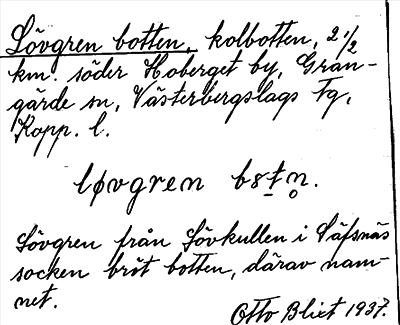 Lövgren botten, kolbotten, 2 1/2
km. söder Hoberget by, Gran-
gärde sn, Västerbergslags Fg,
Kopp. l.
løvgren bɜtn̥.
Lövgren från Lövkullen i Säfsnäs
socken bröt botten, därav nam-
net.
Otto Blixt 1937.